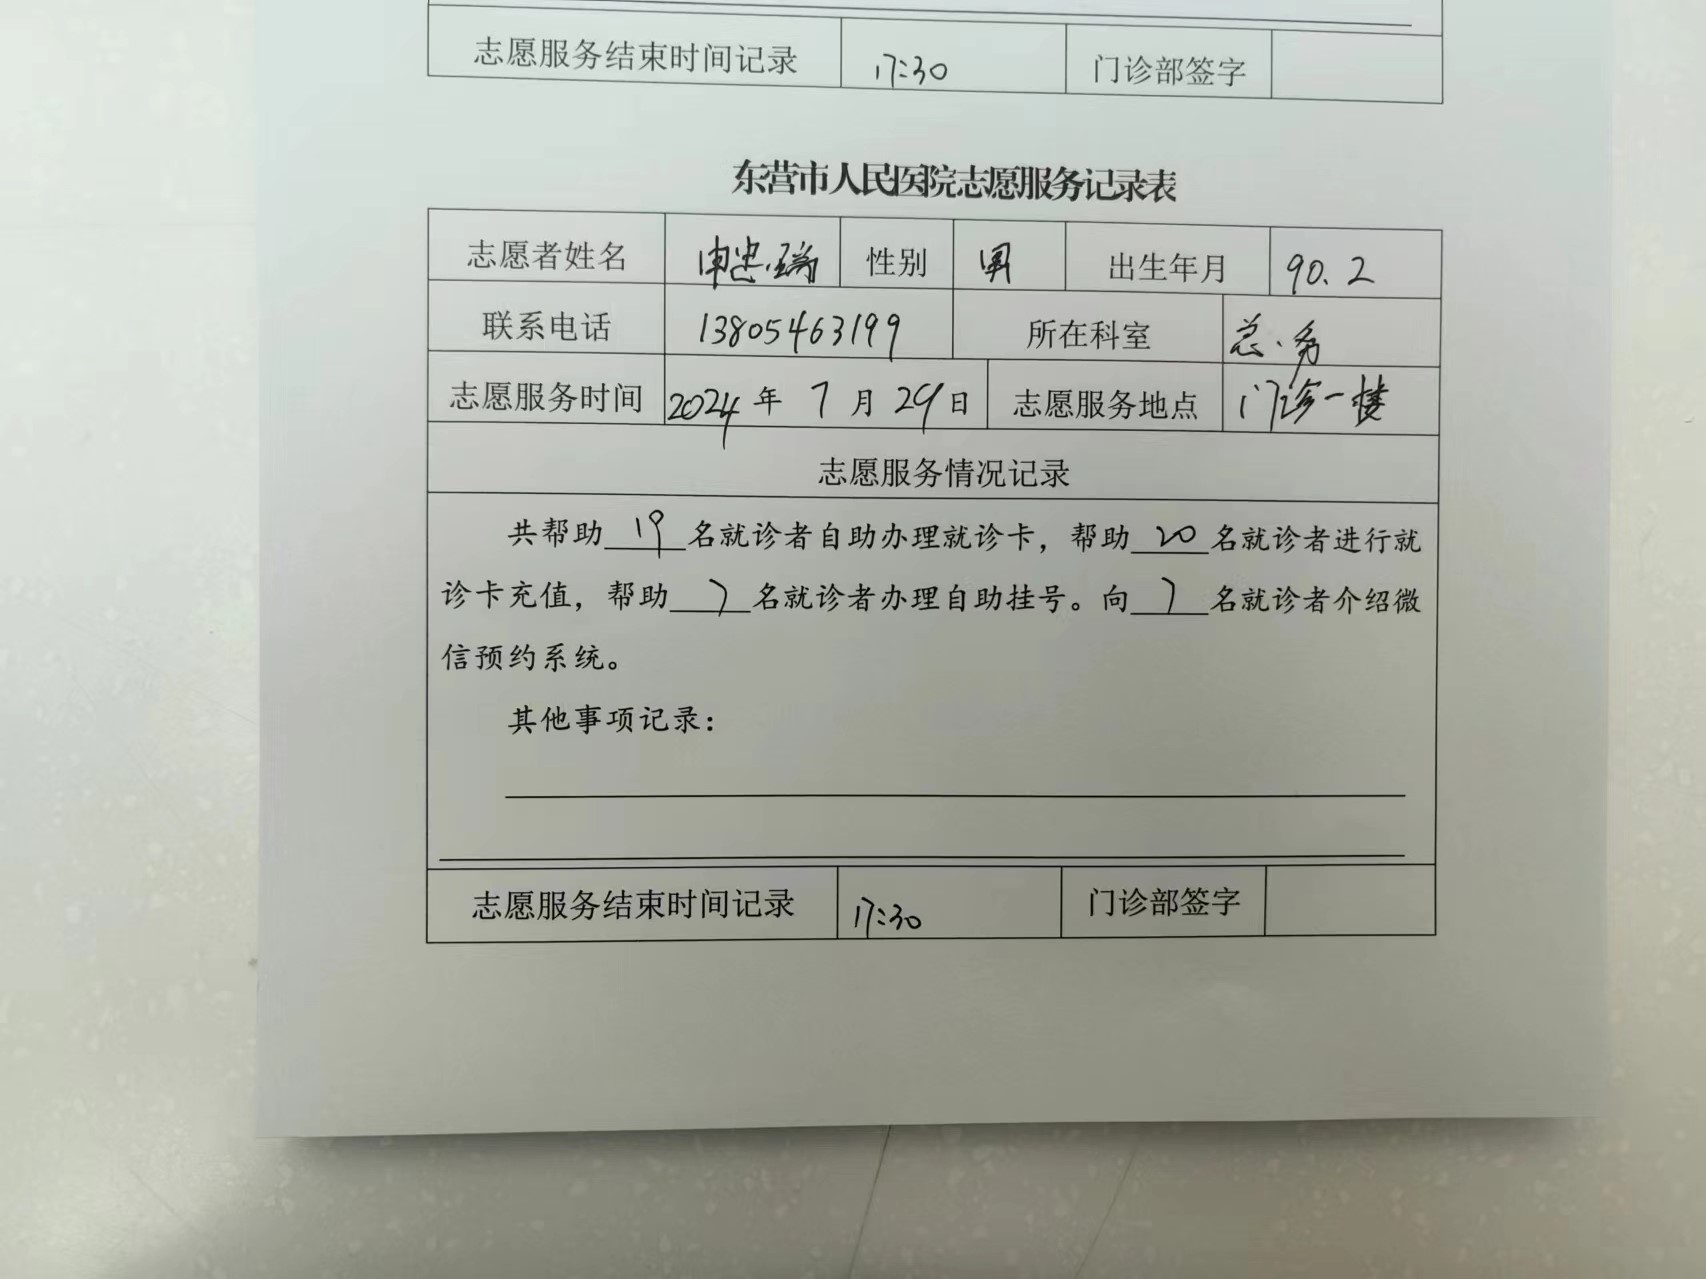 志愿服务结束时间记录 17:30 门诊部签字
东营市人民医院志愿服务记录表
志愿者姓名 申忠瑞 性别 男 出生年月 90.2
联系电话 13805463199 所在科室 总务
志愿服务时间 2024年7月29日 志愿服务地点 门诊一楼
志愿服务情况记录
共帮助19名就诊者自助办理就诊卡，帮助20名就诊者进行就
诊卡充值，帮助7名就诊者办理自助挂号。向7名就诊者介绍微
信预约系统。
其他事项记录：
志愿服务结束时间记录 17:30 门诊部签字